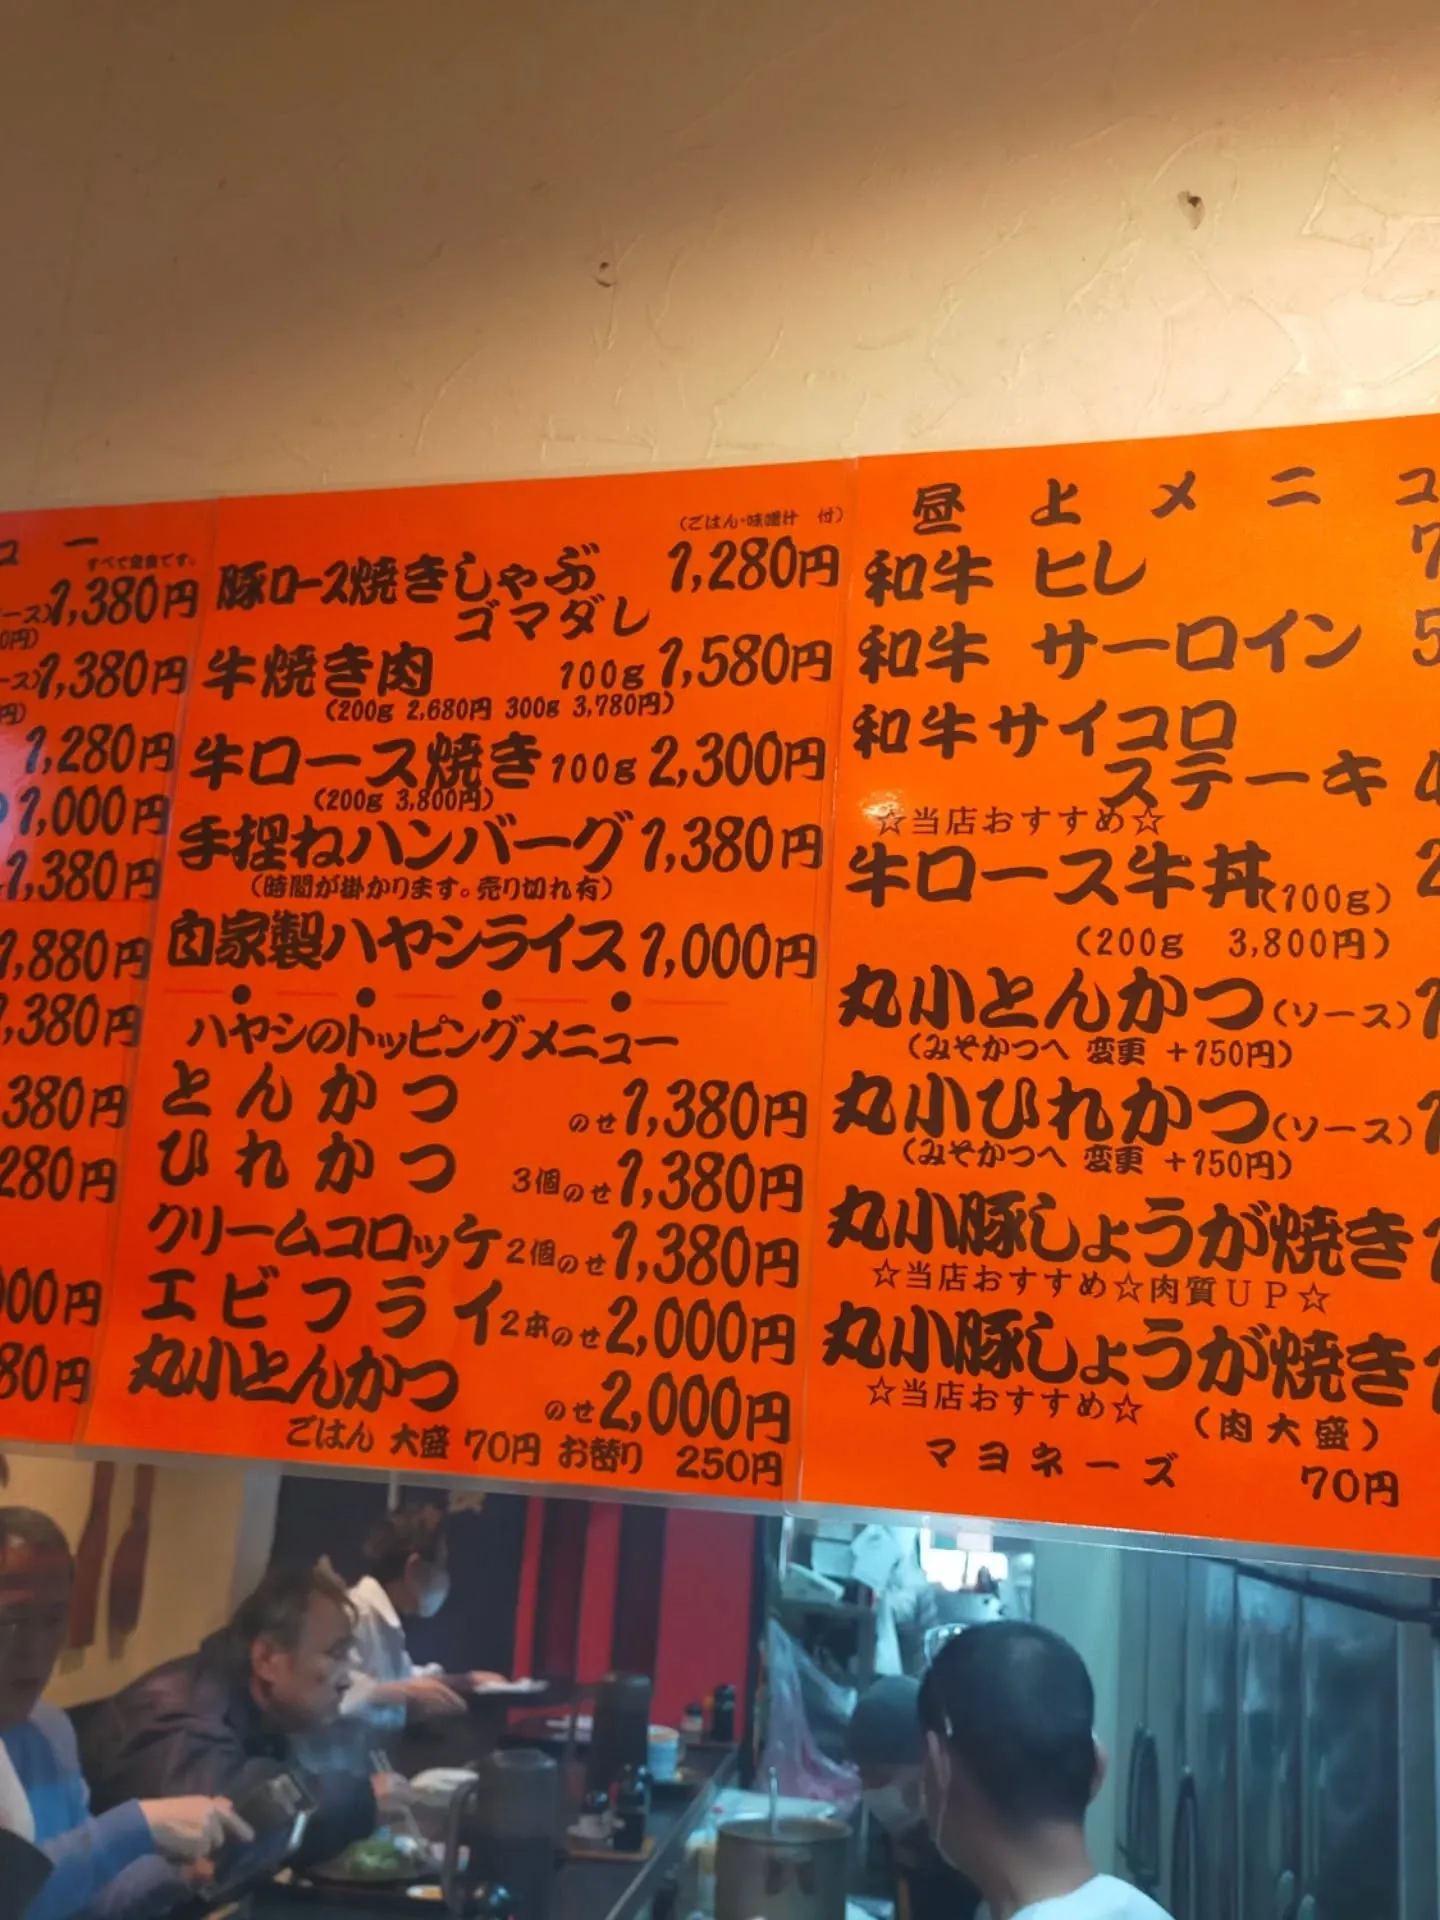 ュー
すべて定食です。
ース)1,380円
0円)
ース)1,380円
円)
1,280円
1,000円
1,380円
1,880円
1,380円
380円
280円
000円
80円
(ごはん・味噌汁 付)
豚ロース焼きしゃぶ 1,280円
ゴマダレ
牛焼き肉 100g 1,580円
(200g 2,680円 300g 3,780円)
牛ロース焼き 100g 2,300円
(200g 3,800円)
手捏ねハンバーグ 1,380円
(時間が掛かります。売り切れ有)
自家製ハヤシライス 1,000円
ハヤシのトッピングメニュー
とんかつ のせ 1,380円
ひれかつ 3個のせ 1,380円
クリームコロッケ 2個のせ 1,380円
エビフライ 2本のせ 2,000円
丸小とんかつ のせ 2,000円
ごはん 大盛 70円 お替り 250円
昼上メニュ
和牛 ヒレ 7
和牛 サーロイン 5
和牛サイコロ
ステーキ 4
☆当店おすすめ☆
牛ロース牛丼(100g) 2
(200g 3,800円)
丸小とんかつ(ソース) 1
(みそかつへ 変更 +150円)
丸小ひれかつ(ソース) 1
(みそかつへ 変更 +150円)
丸小豚しょうが焼き
☆当店おすすめ☆肉質UP☆
丸小豚しょうが焼き
☆当店おすすめ☆ (肉大盛)
マヨネーズ 70円